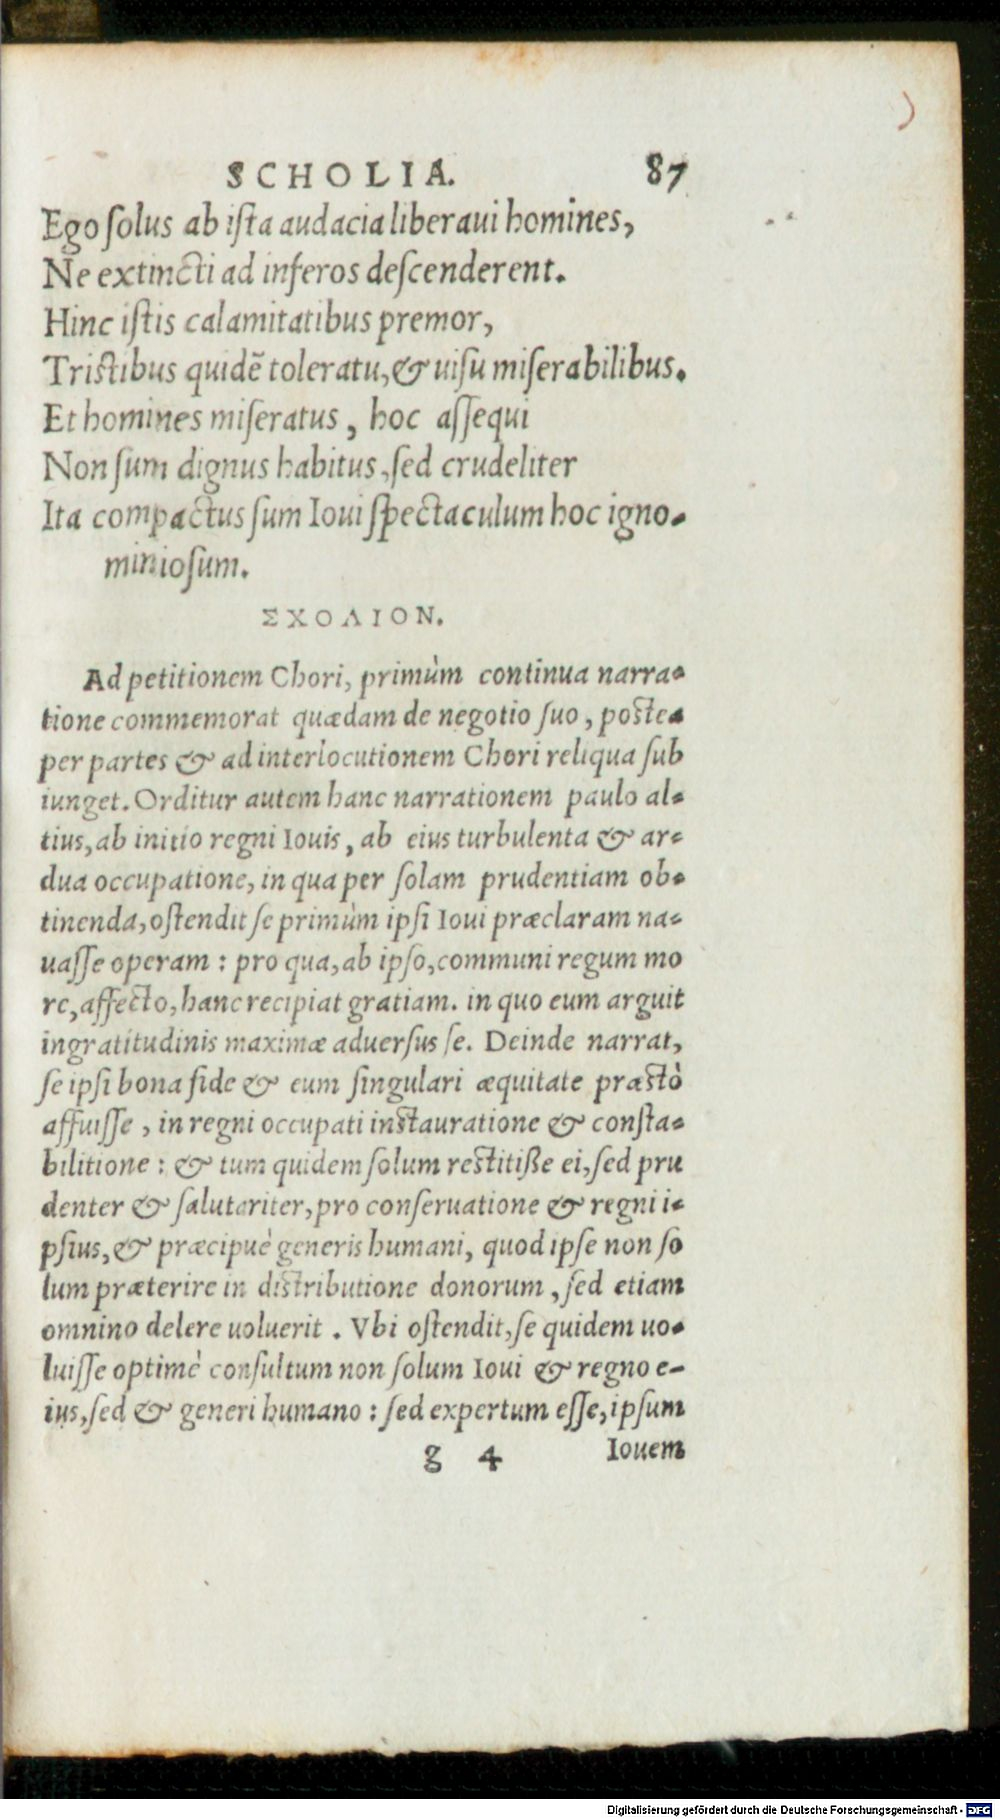 SCHOLIA. 87
Ego ſolus ab iſta audacia liberaui homines,
Ne extincti ad inferos deſcenderent.
Hinc iſtis calamitatibus premor,
Triſtibus quidẽ toleratu, & uiſu miſerabilibus.
Et homines miſeratus, hoc aſſequi
Non ſum dignus habitus, ſed crudeliter
Ita compactus ſum Ioui ſpectaculum hoc igno-
miniosum.
ΣΧΟΛΙΟΝ.
Ad petitionem Chori, primùm continua narra-
tione commemorat quædam de negotio ſuo, poſtea
per partes & ad interlocutionem Chori reliqua ſub
iunget. Orditur autem hanc narrationem paulo al-
tius, ab initio regni Iouis, ab eius turbulenta & ar-
dua occupatione, in qua per ſolam prudentiam ob-
tinenda, oſtendit ſe primùm ipſi Ioui præclaram na-
uaſſe operam : pro qua, ab ipſo, communi regum mo
re, affecto, hanc recipiat gratiam. in quo eum arguit
ingratitudinis maximæ aduerſus ſe. Deinde narrat,
ſe ipſi bona fide & cum ſingulari æquitate præstò
affuiſſe, in regni occupati instauratione & conſta-
bilitione : & tum quidem ſolum reſtitiße ei, ſed pru
denter & ſalutariter, pro conſeruatione & regni i-
pſius, & præcipuè generis humani, quod ipſe non ſo
lum præterire in diſtributione donorum, ſed etiam
omnino delere uoluerit. Vbi oſtendit, ſe quidem uo-
luiſſe optimè conſultum non ſolum Ioui & regno e-
ius, ſed & generi humano : ſed expertum eſſe, ipſum
g 4 Iouem
Digitalisierung gefördert durch die Deutsche Forschungsgemeinschaft - DFG